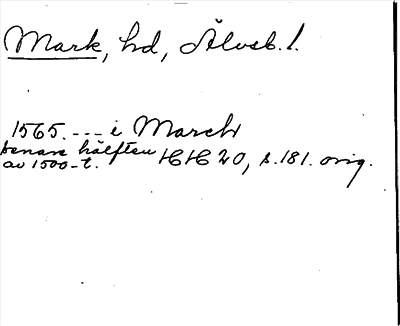 Mark, hd, Älvsb. l.
1565. --- i March
senare hälften
av 1500-t. HH 20, s. 181. orig.